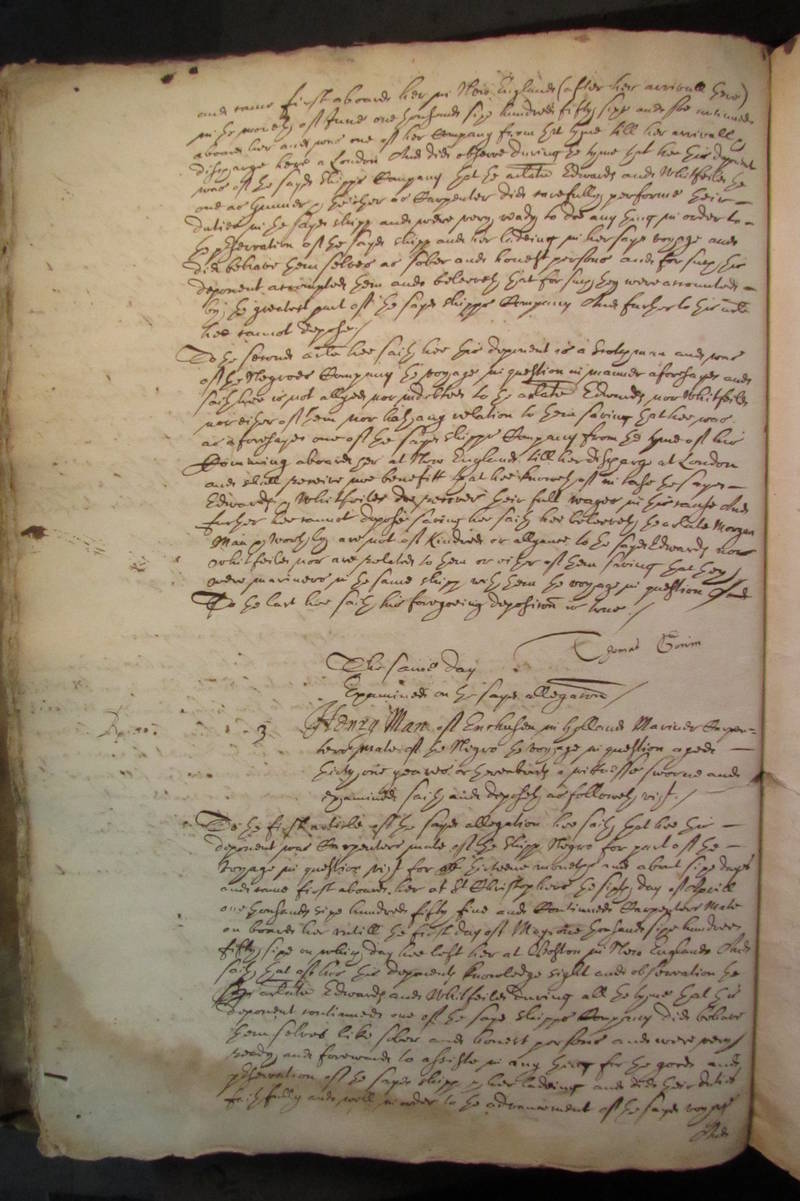 and came first aboard her in New England (after her arrivall there)
in the moneth of June one thousand sixe hundred fifty sixe and soe continued
aboard her and was one of her Company from that tyme till her arrivall &
discharge here at London And did observe during the tyme that hee this deponent
was of the sayd shipps Company that the arlate Edwards and Whitfeild the
one as Gunner & the other as Carpenter did carefully performe their
duties in the sayd shipp and were very ready to doe any thing in order to
the preservation of the sayd shipp and her ladeing in her sayd voyage and
did behave them selves as sober and honest persons and for such this
deponent accompted them and beleeveth that for such they were accounted
by the greatest part of the sayd shipps Company And further to this arlate
hee cannot depose/
To the second arlate hee saith hee this deponent is a and was
of the Negroes Company the voyage in question in manner aforesayd and
saith hee is not allyed nor indebted to the arlate Edwards nor Whitfeild
nor either of them nor hath any relation to them saving that hee was
as aforesayd one of the sayd shipps Company from the tyme of his
Comming aboard her at New England till her discharge at London
and shall receive noe benefitt that hee knoweth of in case the sayd
Edwards & Whitfeild doe recover their full wages in this cause And
further hee cannot depose saving hee saith hee beleeveth the arlate Morgan
Man & are not of kindred or allyance to the sayd Edwards nor
Whitfeild nor are related to them or either of them saving that they
were mariners in the same shipp with them the voyage in question/ And
To the last hee saith his foregoeing deposition is true./
Thomas
The same day
Examined on the sayd allegation/
3 Henry Man of Enchusen in Holland Mariner Carpen=
ters mate of the Negro the voyage in question aged
thirty one yeares or thereabouts a witnesse sworne and
examined saith and deposeth as followeth vizt./
To the first article of the sayd allegation hee saith that hee this
deponent was Carpenters mate of the shipp Negro for part of the
voyage in question vizt for thirteene moneths and about sixe dayes
and came first aboard her at St Christophers the day of Aprill
one thousand sixe hundred fifty five and continued Carpenters Mate
on board her untill the first day of May one thousand sixe hundred
fifty sixe on which day hee left her at Boston in New England And
saith that of his this deponents knowledge sight and observation the
sayd arlate Edwards and Whitfeild during all the tyme that this
deponent continued one of the sayd shipps Company did behave
themselves like sober and honest persons and were very
ready and forewards to assiste in any thing for the good and
preservation of the sayd shipp & her ladeing and did their duties
faithfully and well in order to the advancement of the sayd voyage
And